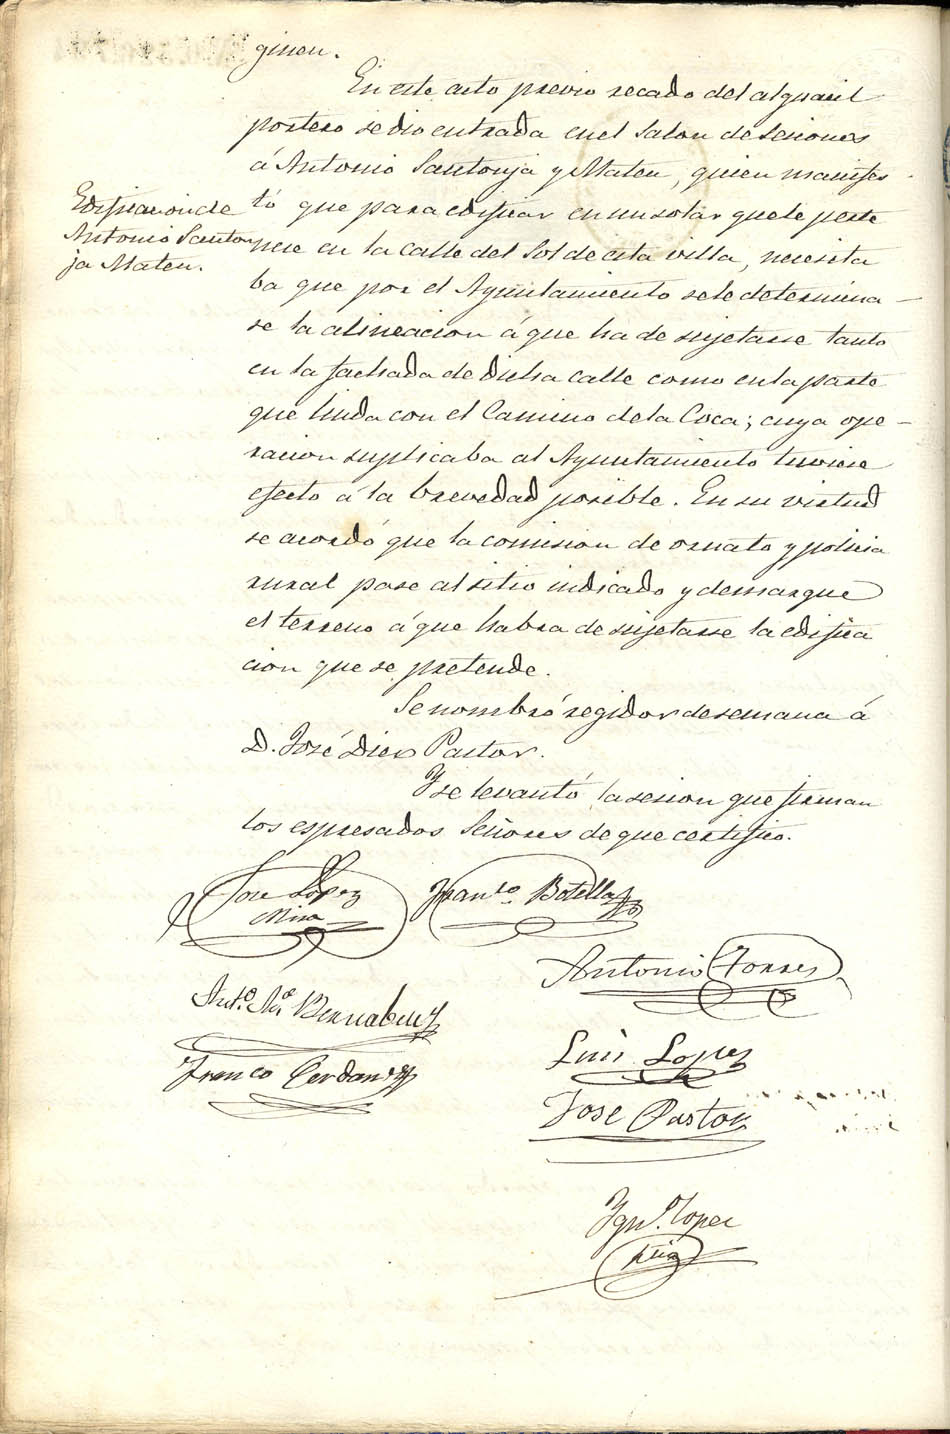 ginen.
En este acto previo recado del alguacil
portero se dio entrada en el Salon de Sesiones
á Antonio Santonja y Mateu, quien manifes
Edificacion de
Antonio Santon
ja Mateu.
tó que para edificar en un solar que le perte
nece en la calle del Sol de esta villa, necesita
ba que por el Ayuntamiento se le determina-
se la alineacion á que ha de sujetarse tanto
en la fachada de dicha calle como en la parte
que linda con el Camino de la Coca; cuya ope-
racion suplicaba al Ayuntamiento tuviese
efecto á la brevedad posible. En su virtud
se acordó que la comision de ornato y policia
rural pase al sitio indicado y demarque
el terreno á que habra de sujetarse la edifica
cion que se pretende.
Se nombró regidor de semana á
D. José Diez Pastor.
Y se levantó la sesion que firman
los espresados Señores de que certifico.
Jose Lopez
Mira
Franco. Botella
Antonio Torres
Anto. Ma. Bernabeu
Luis Lopez
Franco Cerdan
Jose Pastor
Igno. Lopez